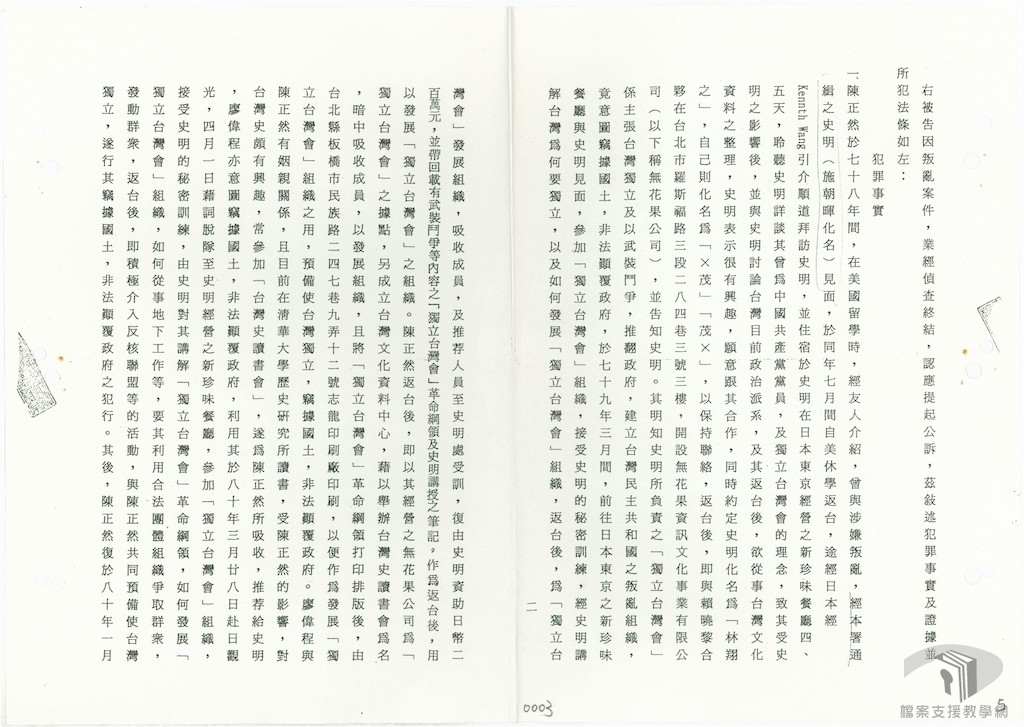 右被告因叛亂案件，業經偵查終結，認應提起公訴，茲敍述犯罪事實及證據並
所犯法條如左：
犯罪事實
一、陳正然於七十八年間，在美國留學時，經友人介紹，曾與涉嫌叛亂，經本署通
緝之史明（施朝暉化名）見面，於同年七月間自美休學返台，途經日本經
Kennth Wang引介順道拜訪史明，並住宿於史明在日本東京經營之新珍味餐廳四、
五天，聆聽史明詳談其曾爲中國共產黨黨員，及獨立台灣會的理念，致其受史
明之影響後，並與史明討論台灣目前政治派系，及其返台後，欲從事台灣文化
資料之整理，史明表示很有興趣，願意跟其合作，同時約定史明化名爲「林翔
之」，自己則化名爲「×茂」「茂×」，以保持聯絡，返台後，即與賴曉黎合
夥在台北市羅斯福路三段二八四巷三號三樓，開設無花果資訊文化事業有限公
司（以下稱無花果公司），並告知史明。其明知史明所負責之「獨立台灣會」
係主張台灣獨立及以武裝鬥爭，推翻政府，建立台灣民主共和國之叛亂組織，
竟意圖竊據國土，非法顚覆政府，於七十九年三月間，前往日本東京之新珍味
餐廳與史明見面，參加「獨立台灣會」組織，接受史明的秘密訓練，經史明講
解台灣爲何要獨立，以及如何發展「獨立台灣會」組織，返台後，爲「獨立台
二
灣會」發展組織，吸收成員，及推荐人員至史明處受訓，復由史明資助日幣二
百萬元，並帶回載有武裝鬥爭等內容之「獨立台灣會」革命綱領及史明講授之筆記，作爲返台後，用
以發展「獨立台灣會」之組織。陳正然返台後，即以其經營之無花果公司爲「
獨立台灣會」之據點，另成立台灣文化資料中心，藉以舉辦台灣史讀書會爲名
，暗中吸收成員，以發展組織，且將「獨立台灣會」革命綱領打印排版後，由
台北縣板橋市民族路二四七巷九弄十二號志龍印刷廠印刷，以便作爲發展「獨
立台灣會」組織之用，預備使台灣獨立，竊據國土，非法顚覆政府。廖偉程與
陳正然有姻親關係，且目前在清華大學歷史硏究所讀書，受陳正然的影響，對
台灣史頗有興趣，常參加「台灣史讀書會」，遂爲陳正然所吸收，推荐給史明
，廖偉程亦意圖竊據國土，非法顚覆政府，利用其於八十年三月廿八日赴日觀
光，四月一日藉詞脫隊至史明經營之新珍味餐廳，參加「獨立台灣會」組織，
接受史明的秘密訓練，由史明對其講解「獨立台灣會」革命綱領，如何發展「
獨立台灣會」組織，如何從事地下工作等，要其利用合法團體組織爭取群衆，
發動群衆，返台後，即積極介入反核聯盟等的活動，與陳正然共同預備使台灣
獨立，遂行其竊據國土，非法顚覆政府之犯行。其後，陳正然復於八十年一月
0003
5
檔案支援教學網